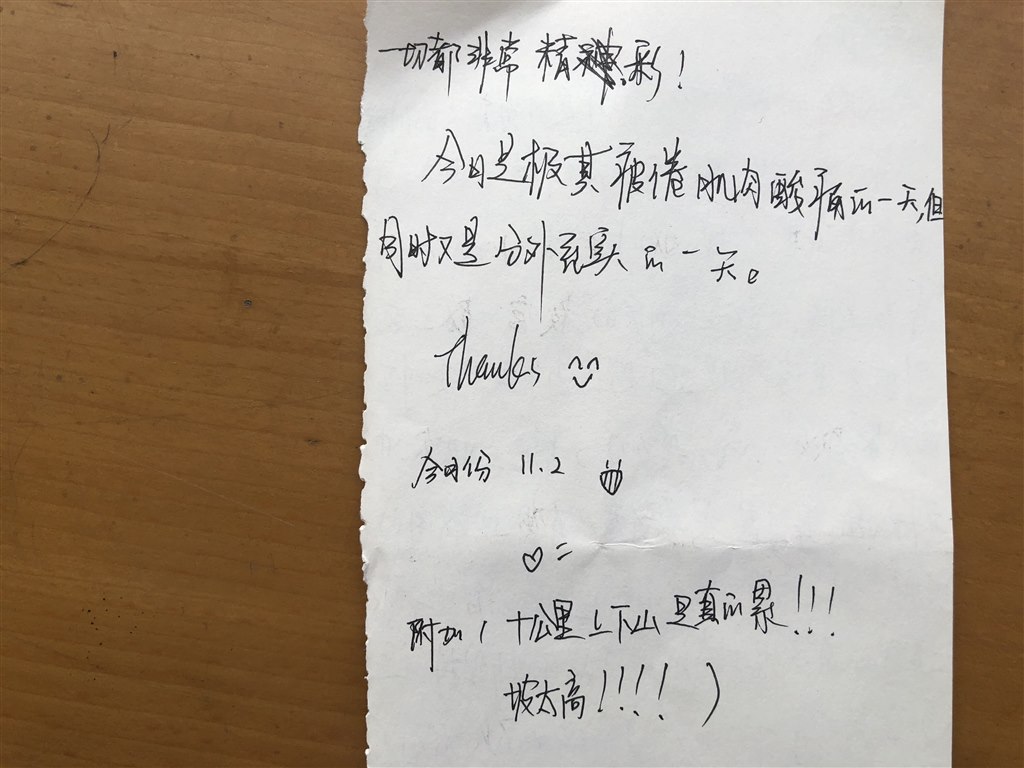 一切都非常精彩!
今日是极其疲倦肌肉酸痛的一天,但
同时又是分外充实的一天。
Thanks
11.2
附加(十公里上下山是真的累!!!
坡太高!!!!)